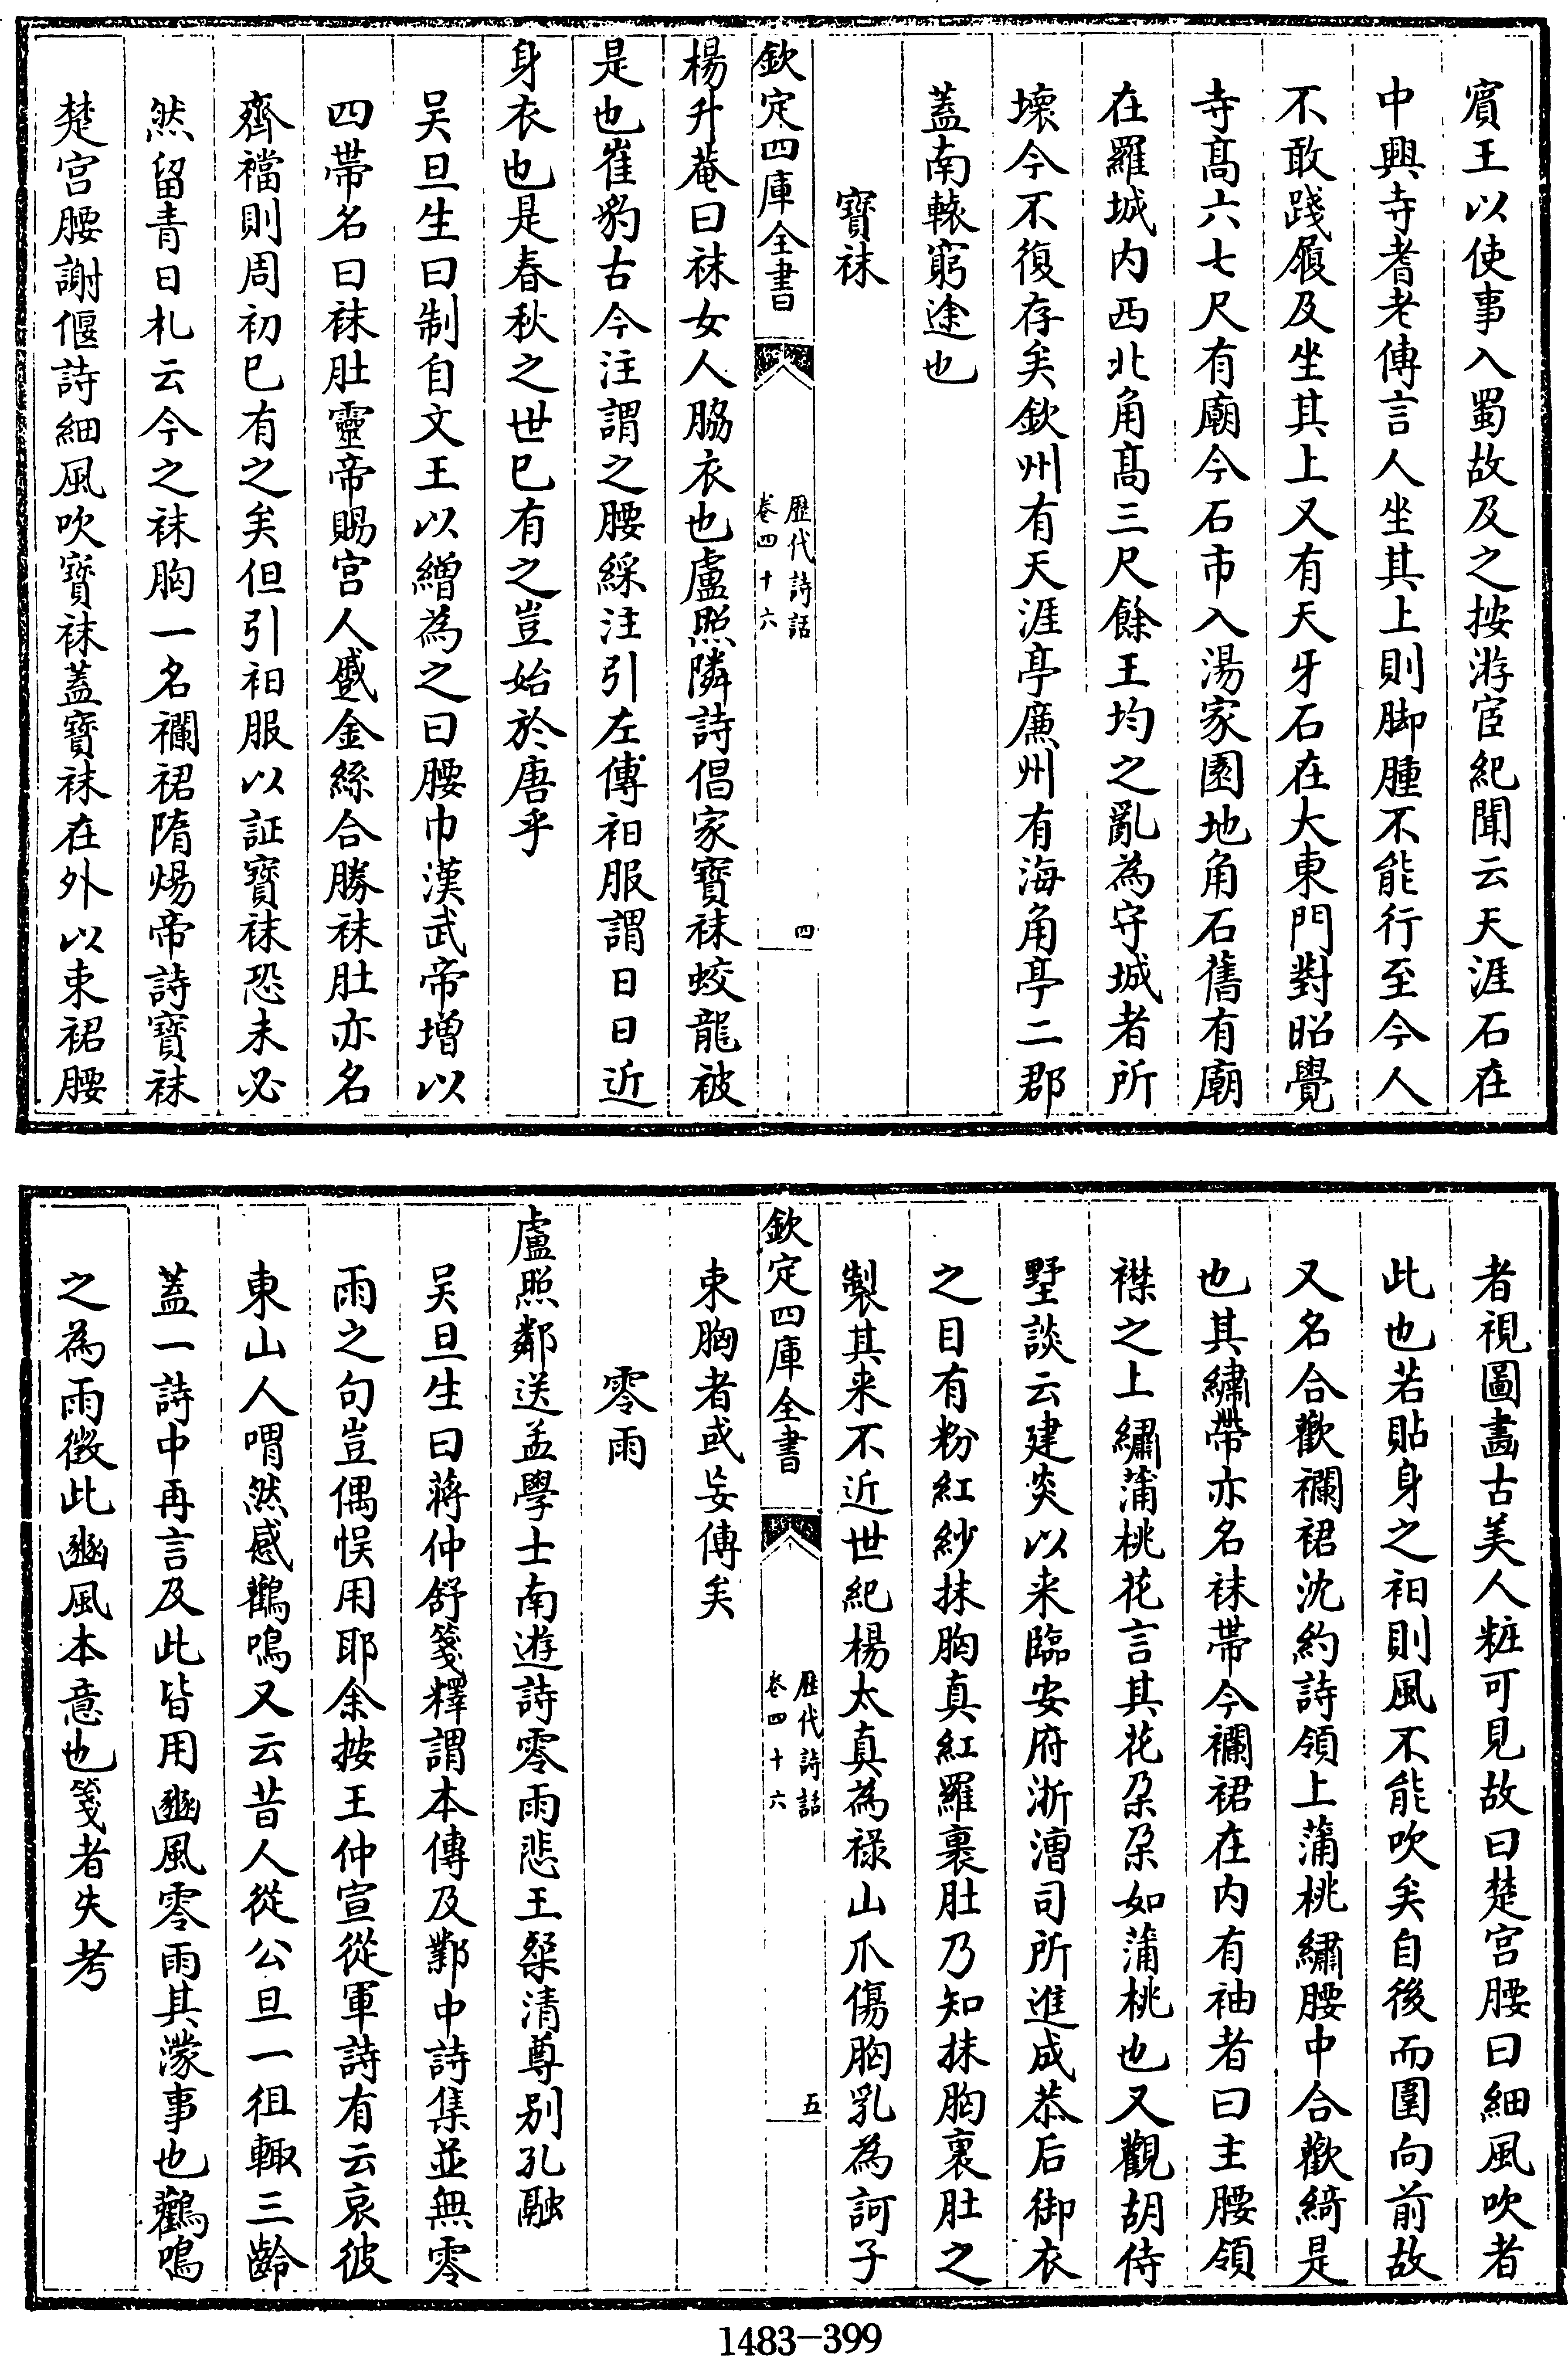 賔王以使事入蜀故及之按游宦紀聞云天涯石在
中興寺耆老傳言人坐其上則脚腫不能行至今人
不敢踐履及坐其上又有天牙石在大東門對昭覺
寺髙六七尺有廟今石市入湯家園地角石舊有廟
在羅城内西北角髙三尺餘王均之亂為守城者所
壊今不復存矣欽州有天涯亭㢘州有海角亭二郡
蓋南轅窮途也
寳袜
欽定四庫全書
歴代詩話
卷四十六
四
楊升菴曰袜女人脇衣也盧照隣詩倡家寳袜蛟龍被
是也崔豹古今注謂之腰綵注引左傳衵服謂日日近
身衣也是春秋之世已有之豈始於唐乎
吴旦生曰制自文王以繒為之曰腰巾漢武帝増以
四帶名曰袜肚靈帝賜宫人蹙金絲合勝袜肚亦名
齊襠則周初已有之矣但引衵服以証寳袜恐未必
然留青日札云今之袜胸一名襴裙隋煬帝詩寳袜
楚宫腰謝偃詩細風吹寳袜蓋寳袜在外以束裙腰
者視圖畫古美人粧可見故曰楚宫腰曰細風吹者
此也若貼身之衵則風不能吹矣自後而圍向前故
又名合歡襴裙沈約詩領上蒲桃繡腰中合歡綺是
也其繡帶亦名袜帶今襴裙在内有袖者曰主腰領
襟之上繡蒲桃花言其花朶朶如蒲桃也又觀胡侍
墅談云建炎以来臨安府浙漕司所進成恭后御衣
之目有粉紅紗抹胸真紅羅裏肚乃知抹胸裏肚之
製其来不近世紀楊太真為禄山爪傷胸乳為訶子
欽定四庫全書
歴代詩話
卷四十六
五
束胸者或妄傳矣
零雨
盧照鄰送孟學士南遊詩零雨悲王粲清尊别孔融
吴旦生曰蔣仲舒箋釋謂本傳及鄴中詩集並無零
雨之句豈偶悮用耶余按王仲宣從軍詩有云哀彼
東山人喟然感鸛鳴又云昔人從公旦一徂輙三齡
蓋一詩中再言及此皆用豳風零雨其濛事也鸛鳴
之為雨徴此豳風本意也箋者失考
1483—399